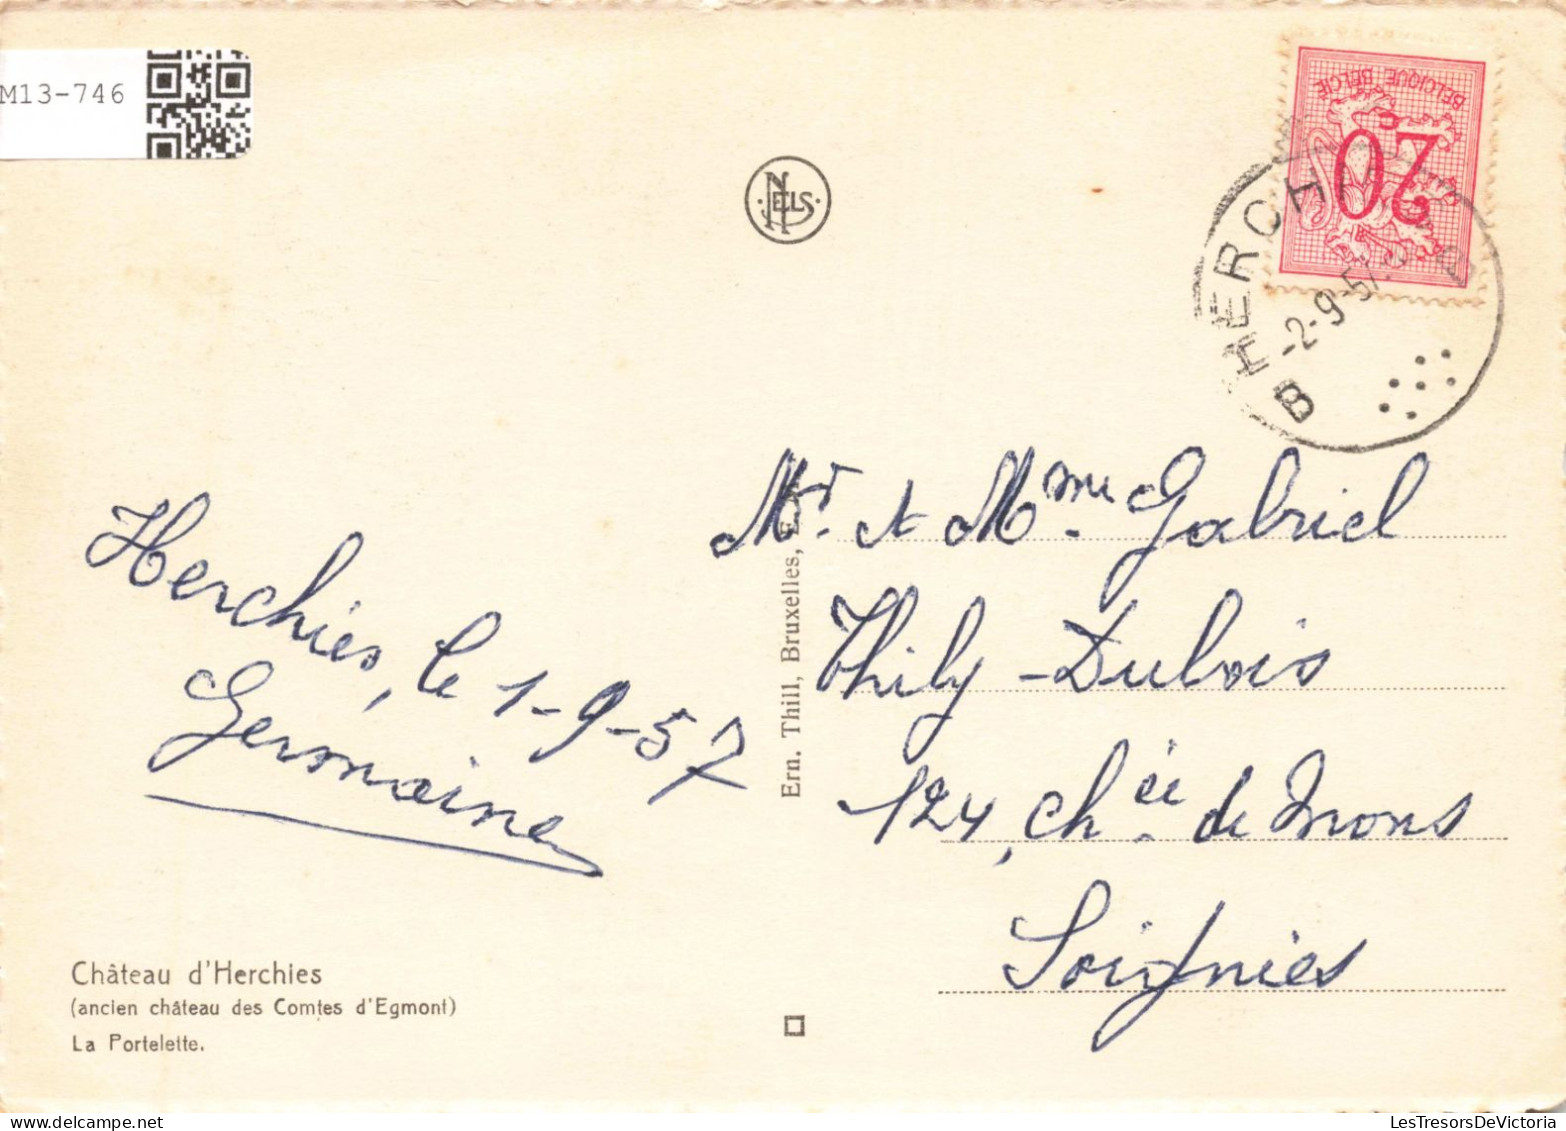 M13-746
NELS
BELGIQUE BELGIË
20
C
B HERCHIES B
-2-9-57
Herchies, le 1-9-57
Germaine
Ern. Thill, Bruxelles,
Mr. et Mme. Gabriel
Thily-Dubois
124, Chée. de Mons
Soignies
Château d'Herchies
(ancien château des Comtes d'Egmont)
La Portelette.
LesTresorsDeVictoria